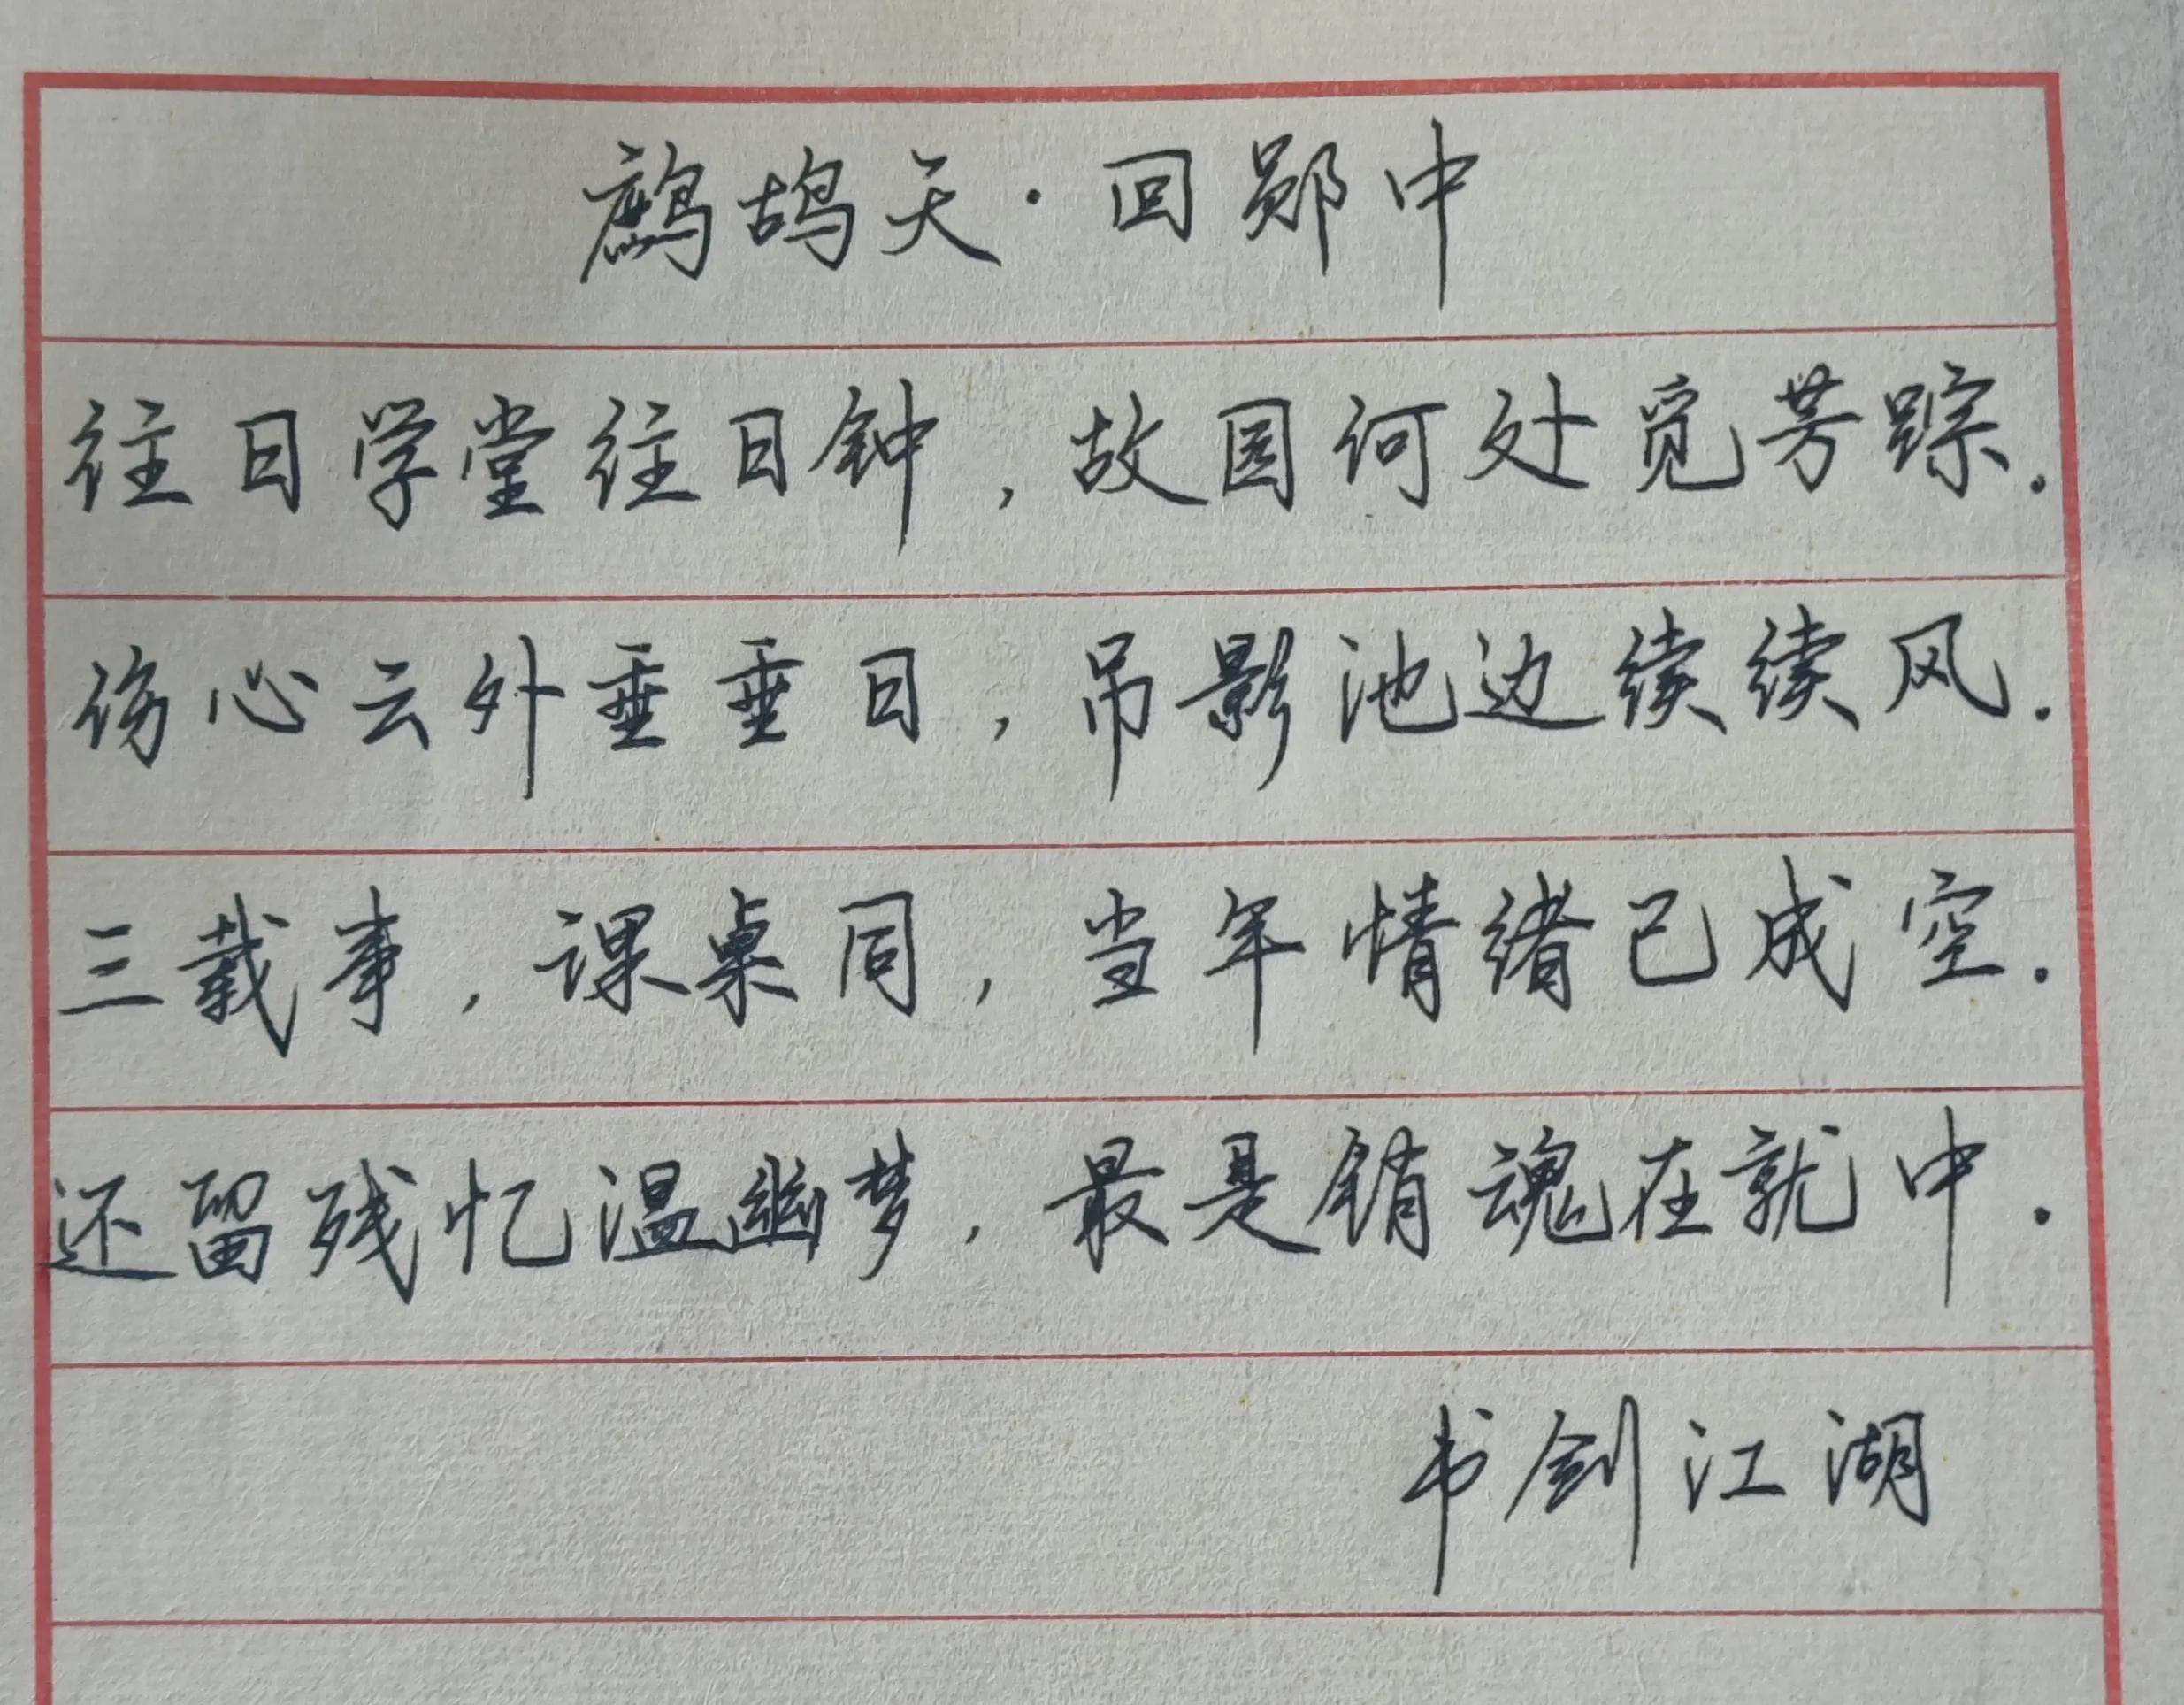 鹧鸪天·回郧中
往日学堂往日钟，故园何处觅芳踪.
伤心云外垂垂日，吊影池边续续风.
三载事，课桌同，当年情绪已成空.
还留残忆温幽梦，最是销魂在就中.
书剑江湖